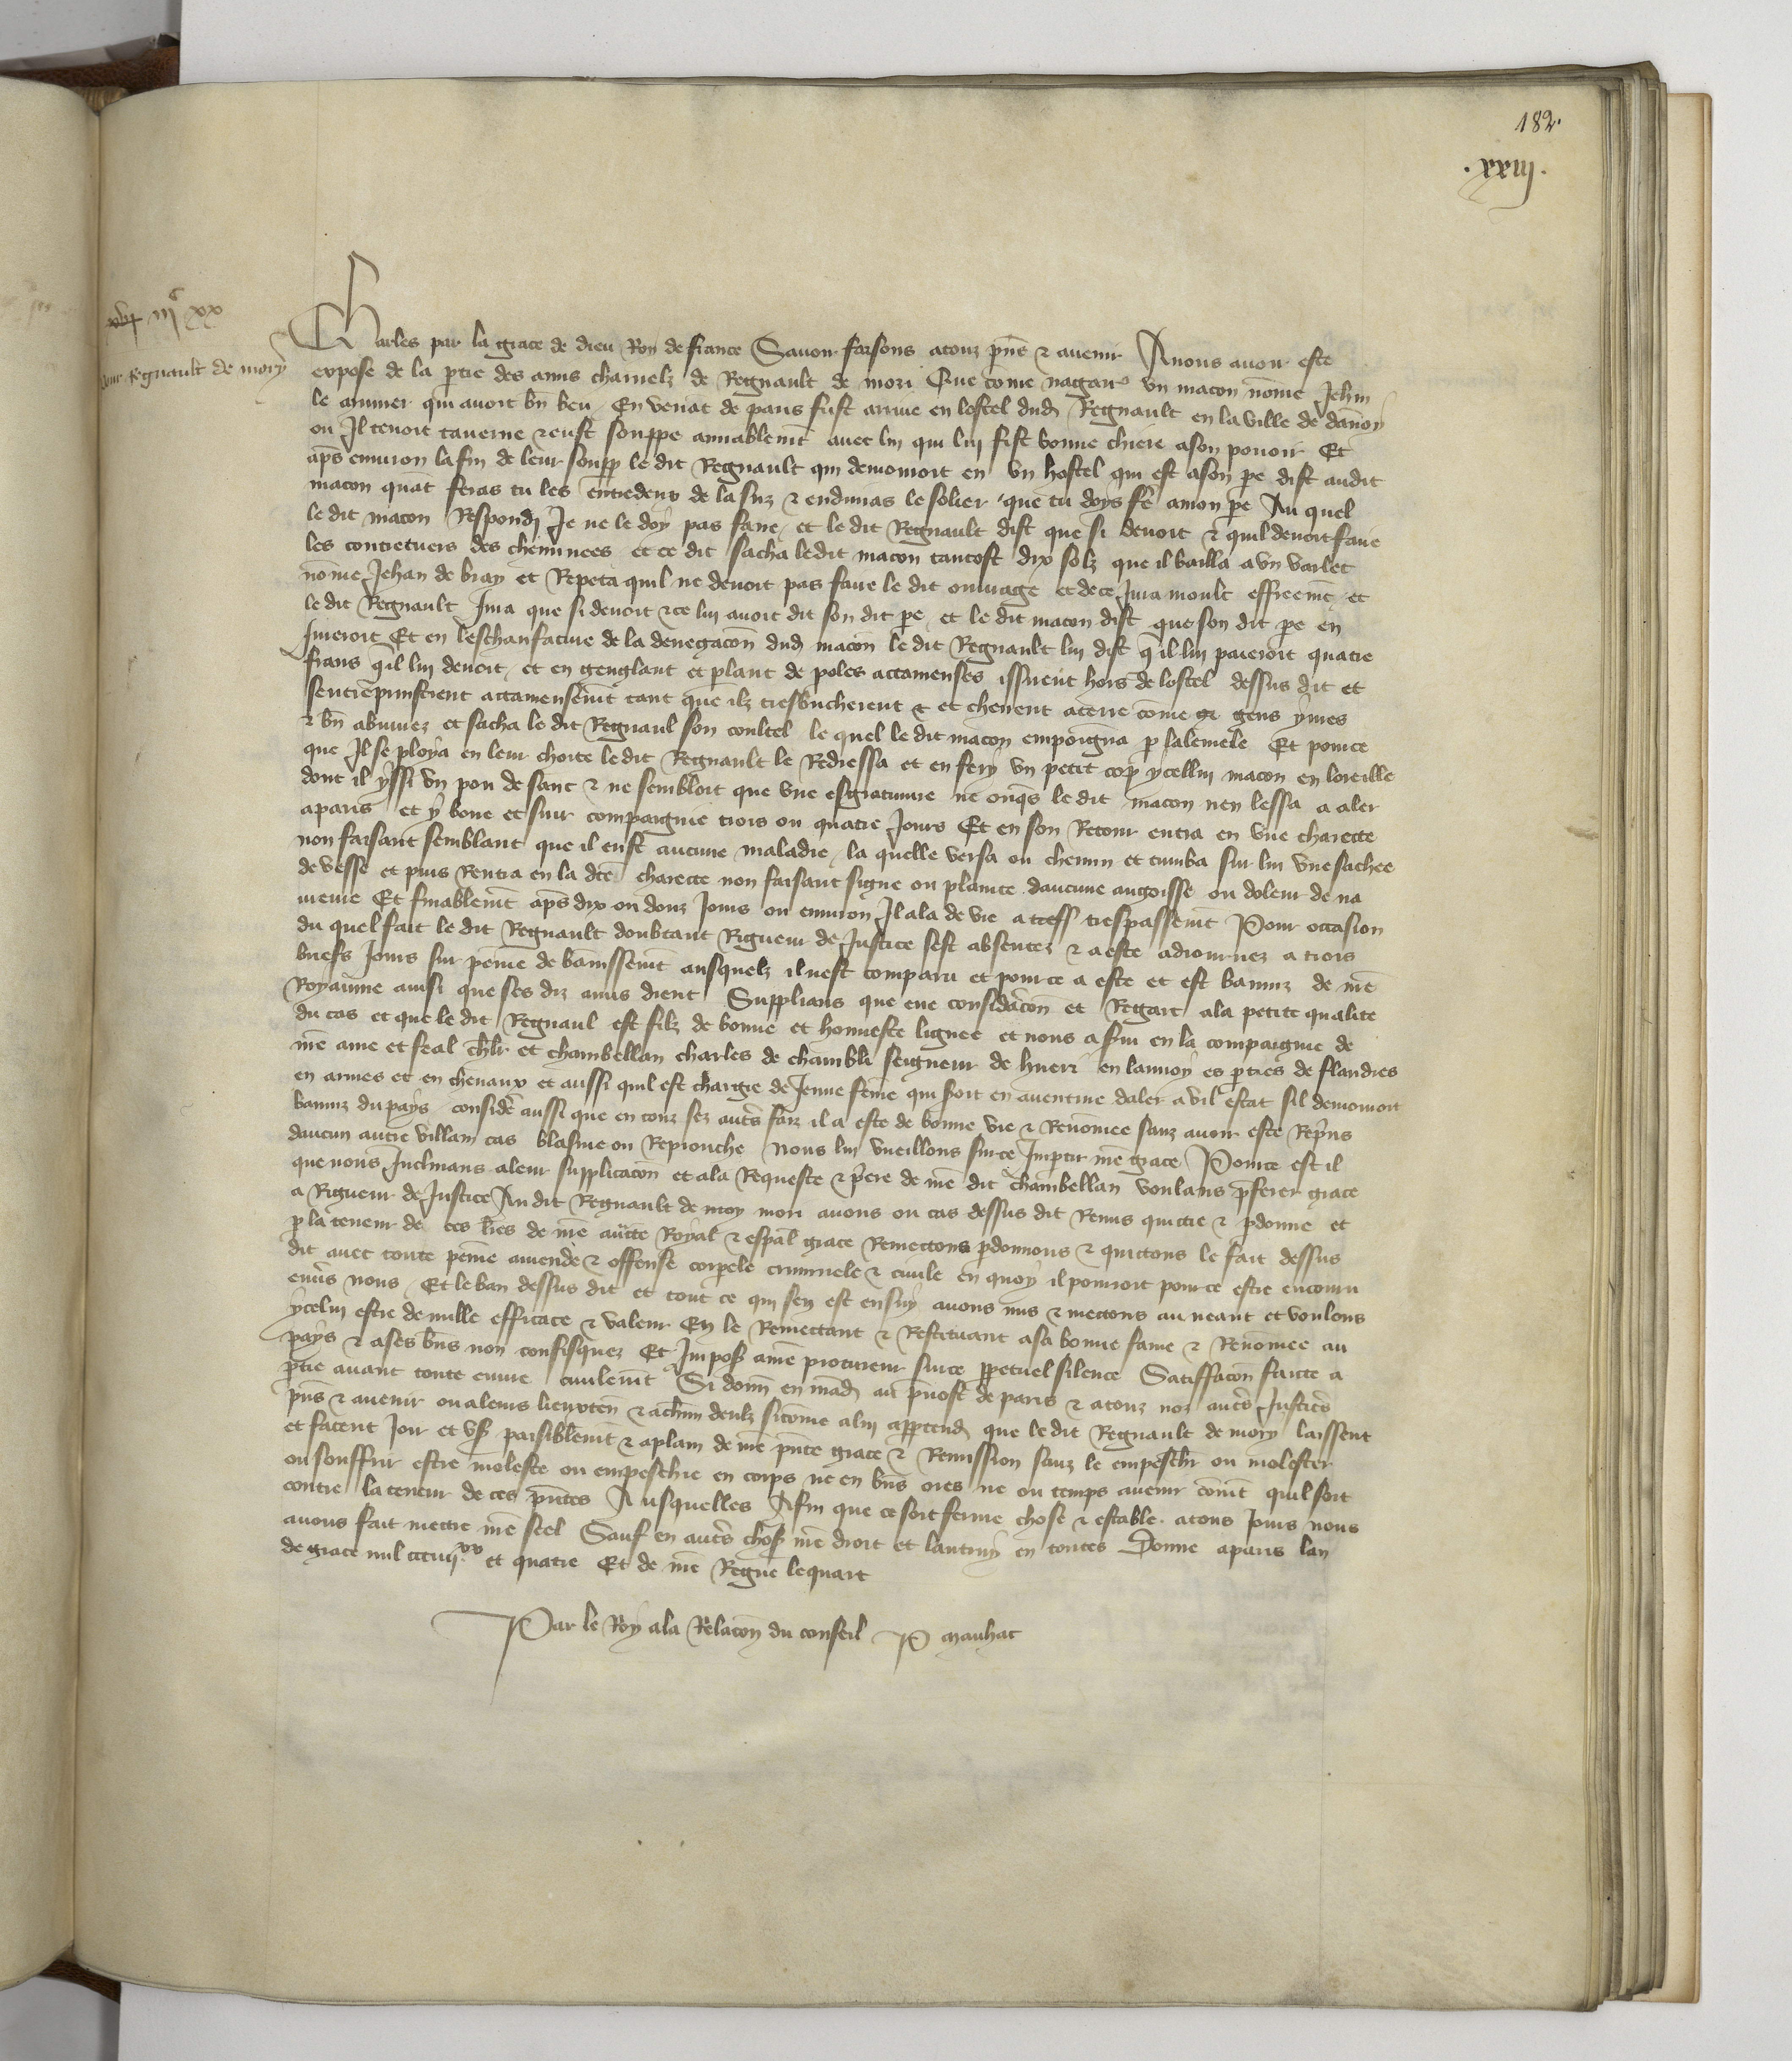 182.
.xxiij.
iiijc xx
pour Regnault de mory
Charles par la grace de dieu Roy de france Sauoir faisons atouz pñs & auenir Anous auoir este
expose de la ptie des amis charnelz de Regnault de mori Que cõme nagair vn macon nõme Jehan
le qui auoit bñ beu / En venãt de paris fust arriue en lostel dud Regnault en la ville de
ou Il tenoit tauerne & eust souppe amiablemẽt auec lui qui lui fist bonne chiere ason pouoir Et
aps enuiron la fin de leur soupp le dit Regnault qui demouroit en vn hostel qui est ason pe dist audit
macon quãt feras tu les entredeux de la & enduiras le solier que tu doys fe amon pe Au quel
le dit macon Respondi Je ne le doy pas faire / et le dit Regnault dist que si deuoit & quil deuoit faire
les contrecuers des cheminees et ce dit sacha ledit macon tantost dix solz que il bailla a vn varlet
nõme Jehan de bray et Repeta quil ne deuoit pas faire le dit ouurage et de ce Jura moult effreemẽt / et
le dit Regnault Jura que si deuoit & ce lui auoit dit son dit pe / et le dit macon dist que son dit pe en
Jureroit Et en leschaufature de la denegacõn dud macõn le dit Regnault lui dist q̃ il lui paieroit quatre
frans q̃il lui deuoit / et en genglant et plant de poles attaineuses issirent hors de lostel dessus dit et
sentreprinstrent attaineusemẽt tant que ilz tresbucherent & et cheirent aterre cõme gens yures
& bñ abuurez et sacha le dit Regnaul son coultel le quel le dit macon empoigna p lalemele Et pource
que Il se ploya en leur choite le dit Regnault le Redressa et en fery vn petit cop ycellui macon en loreille
dont il yssi vn pou de sanc & ne sembloit que vne esgratinure ne onqs le dit macon nen lessa a aler
aparis et y boire et suir compaignie trois ou quatre Jours Et en son Retour entra en vne charette
non faisant semblant que il eust aucune maladie / la quelle versa ou chemin et tumba sur lui vne sachee
de vesse et puis Rentra en la dte charette non faisant signe ou plainte daucune angoisse ou doleur de na
ureure Et finablemẽt aps dix ou douz Jours ou enuiron Il ala de vie a tress trespassemẽt Pour occasion
du quel fait le dit Regnault doubtant Rigueur de Justice sest absentez & a este adiournez a trois
briefs Jours sur peinne de bannissemẽt ausquelz il nest comparu et pource a este et est banniz de nr̃e
Royaume ainsi que ses diz amis dient Supplians que eue considacõn et Regart ala petite qualite
du cas et que le dit Regnaul est filz de bonne et honneste lignee et nous a seruy en la compaignie de
nr̃e ame et feal chlr et chambellan charles de chambli seigneur de en launoy es pties de flandres
en armes et en cheuaux et aussi quil est chargie de Jeune fẽme qui seroit en auenture daler a vil estat sil demouroit
banniz du pays / considẽ aussi que en touz sez autẽs faiz il a este de bonne vie & Renõmee sanz auoir este Repris
daucun autre villain cas blasme ou Reprouche Nous lui vueillons surce Jmptir nr̃e grace Pource est il
que nous Jnclinans aleur supplicacõn et ala Requeste & p̃iere de nr̃e dit chambellan voulans pferer grace
a Rigueur de Justice Au dit Regnault de moy mori auons ou cas dessus dit Remis quictie & pdonne et
p la teneur de ces lres de nr̃e aucte Royal & espal grace Remectons pdonnons & quictons le fait dessus
dit auec toute peinne amende & offense corpele criminele & ciuile en quoy il pourroit pource estre encouru
enuers nous / Et le ban dessus dit et tout ce qui sen est ensuy auons mis & mectons au neant et voulons
ycelui estre de nulle efficace & valeur En le Remectant & Restituant asa bonne fame & Renõmee au
pays & ases bñs non confisquez Et Jmposs anr̃e procureur surce ppetuel silence Satiffacõn faicte a
ptie auant toute euure ciuilemẽt Si donñ en mãd au puost de paris & atouz noz autẽs Justicẽs
pñs & auenir ou aleurs lieuxten & achũn deulz sicõme alui apptend que le dit Regnault de mory laissent
et facent Joir et vss paisiblemẽt & aplain de nr̃e pñte grace & Remission sanz le empeschr ou molester
ou souffrir estre moleste ou empeschie en corps ne en bñs ores ne ou temps auenir cõmẽt quil soit
contre la teneur de ces pñtes Ausquelles Afin que ce soit ferme chose & estable atous Jours nous
auons fait mectre nr̃e seel Sauf en autẽs chos nr̃e droit et lautruy en toutes Donne aparis lan
de grace mil ccciiijxx et quatre Et de nr̃e Regne lequart
Par le Roy ala Relacõn du conseil P mauhac